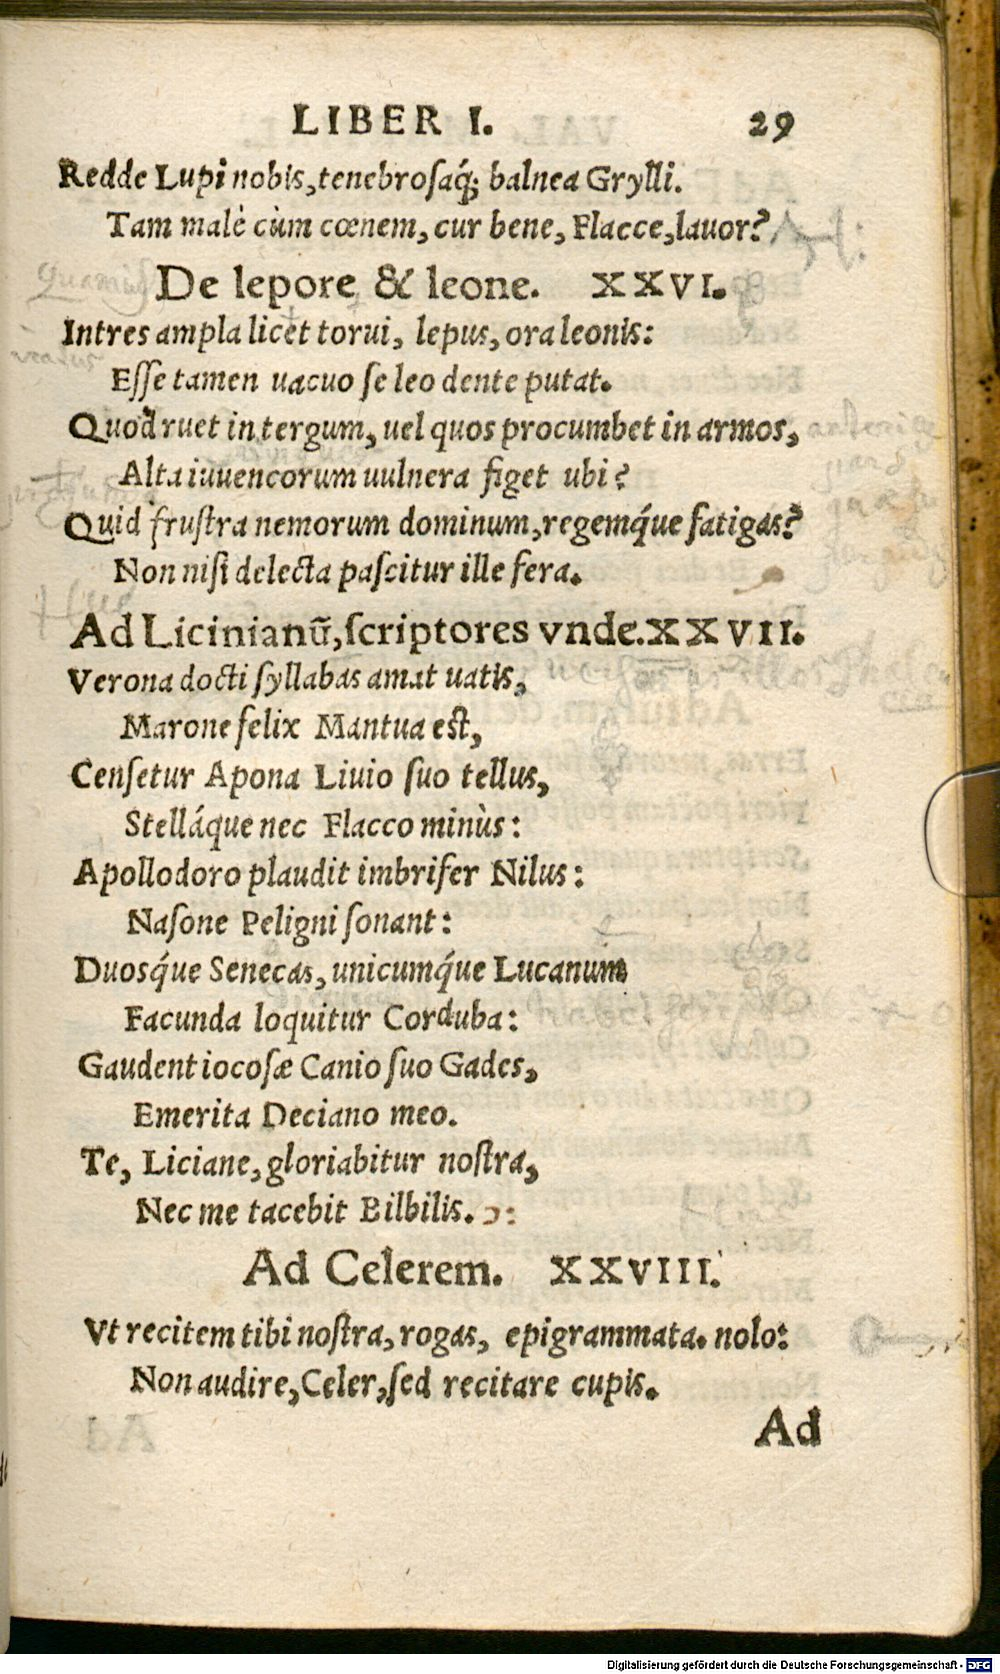 LIBER I. 29
Redde Lupi nobis, tenebrosaq́; balnea Grylli.
Tam malè cùm cœnem, cur bene, Flacce, lauor?
De lepore & leone. XXVI.
Intres ampla licet torui, lepus, ora leonis:
Esse tamen uacuo se leo dente putat.
Quod ruet in tergum, uel quos procumbet in armos,
Alta iuuencorum uulnera figet ubi?
Quid frustra nemorum dominum, regemq́ue fatigas?
Non nisi delecta pascitur ille fera.
Ad Licinianũ, scriptores vnde. XXVII.
Verona docti syllabas amat uatis,
Marone felix Mantua est,
Censetur Apona Liuio suo tellus,
Stelláque nec Flacco minùs:
Apollodoro plaudit imbrifer Nilus:
Nasone Peligni sonant:
Duosq́ue Senecas, unicumq́ue Lucanum
Facunda loquitur Corduba:
Gaudent iocosæ Canio suo Gades,
Emerita Deciano meo.
Te, Liciane, gloriabitur nostra,
Nec me tacebit Bilbilis.
Ad Celerem. XXVIII.
Vt recitem tibi nostra, rogas, epigrammata. nolo:
Non audire, Celer, sed recitare cupis.
Ad
Digitalisierung gefördert durch die Deutsche Forschungsgemeinschaft - DFG